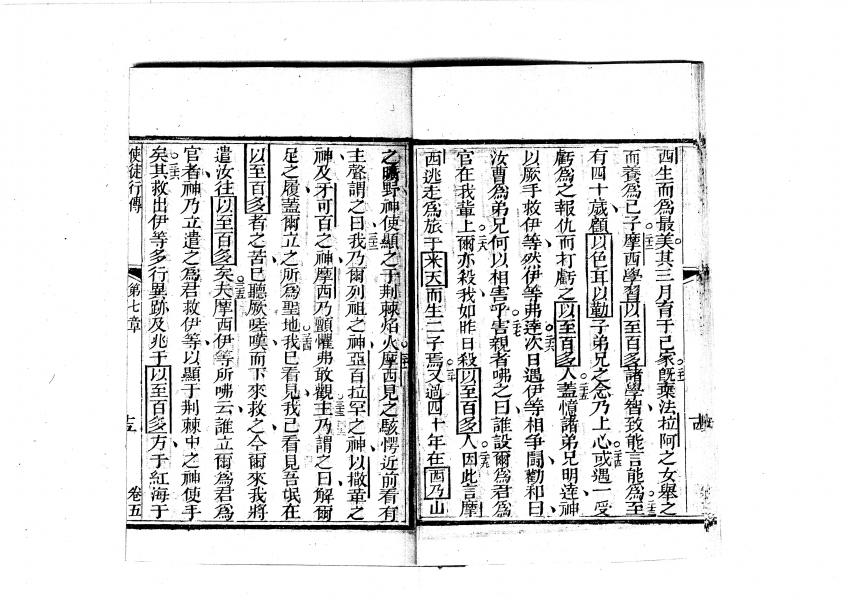 西生而爲最美其三月育于已家旣棄法拉阿之女舉之
而養爲已子摩西學習以至百多諸學智致能言能爲至
有四十歲顧以色耳以勒子弟兄之念乃上心或遇一受
虧爲之報仇而打虧之以至百多人蓋憶諸弟兄明達神
以厥手救伊等然伊等弗達次日遇伊等相爭鬪勸和曰
汝曹爲弟兄何以相害乎害親者咈之曰誰設爾爲君爲
官在我輩上爾亦殺我如昨日殺以至百多人因此言摩
西逃走爲旅于來天而生二子焉又過四十年在西乃山
之曠野神使顯之于荆棘焰火摩西見之駭愕近前看有
主聲謂之曰我乃爾列祖之神亞百拉罕之神以撒革之
神及牙可百之神摩西乃顫懼弗敢觀主乃謂之曰解爾
足之履蓋爾立之所爲聖地我已看見我已看見吾氓在
以至百多者之苦已聽厥嗟嘆而下來救之今爾來我將
遣汝往以至百多矣夫摩西伊等所咈云誰立爾爲君爲
官者神乃立遣之爲君救伊等以顯于荆棘中之神使手
矣其救出伊等多行異跡及兆于以至百多方于紅海于
使徒行傳 第七章 十五 卷五